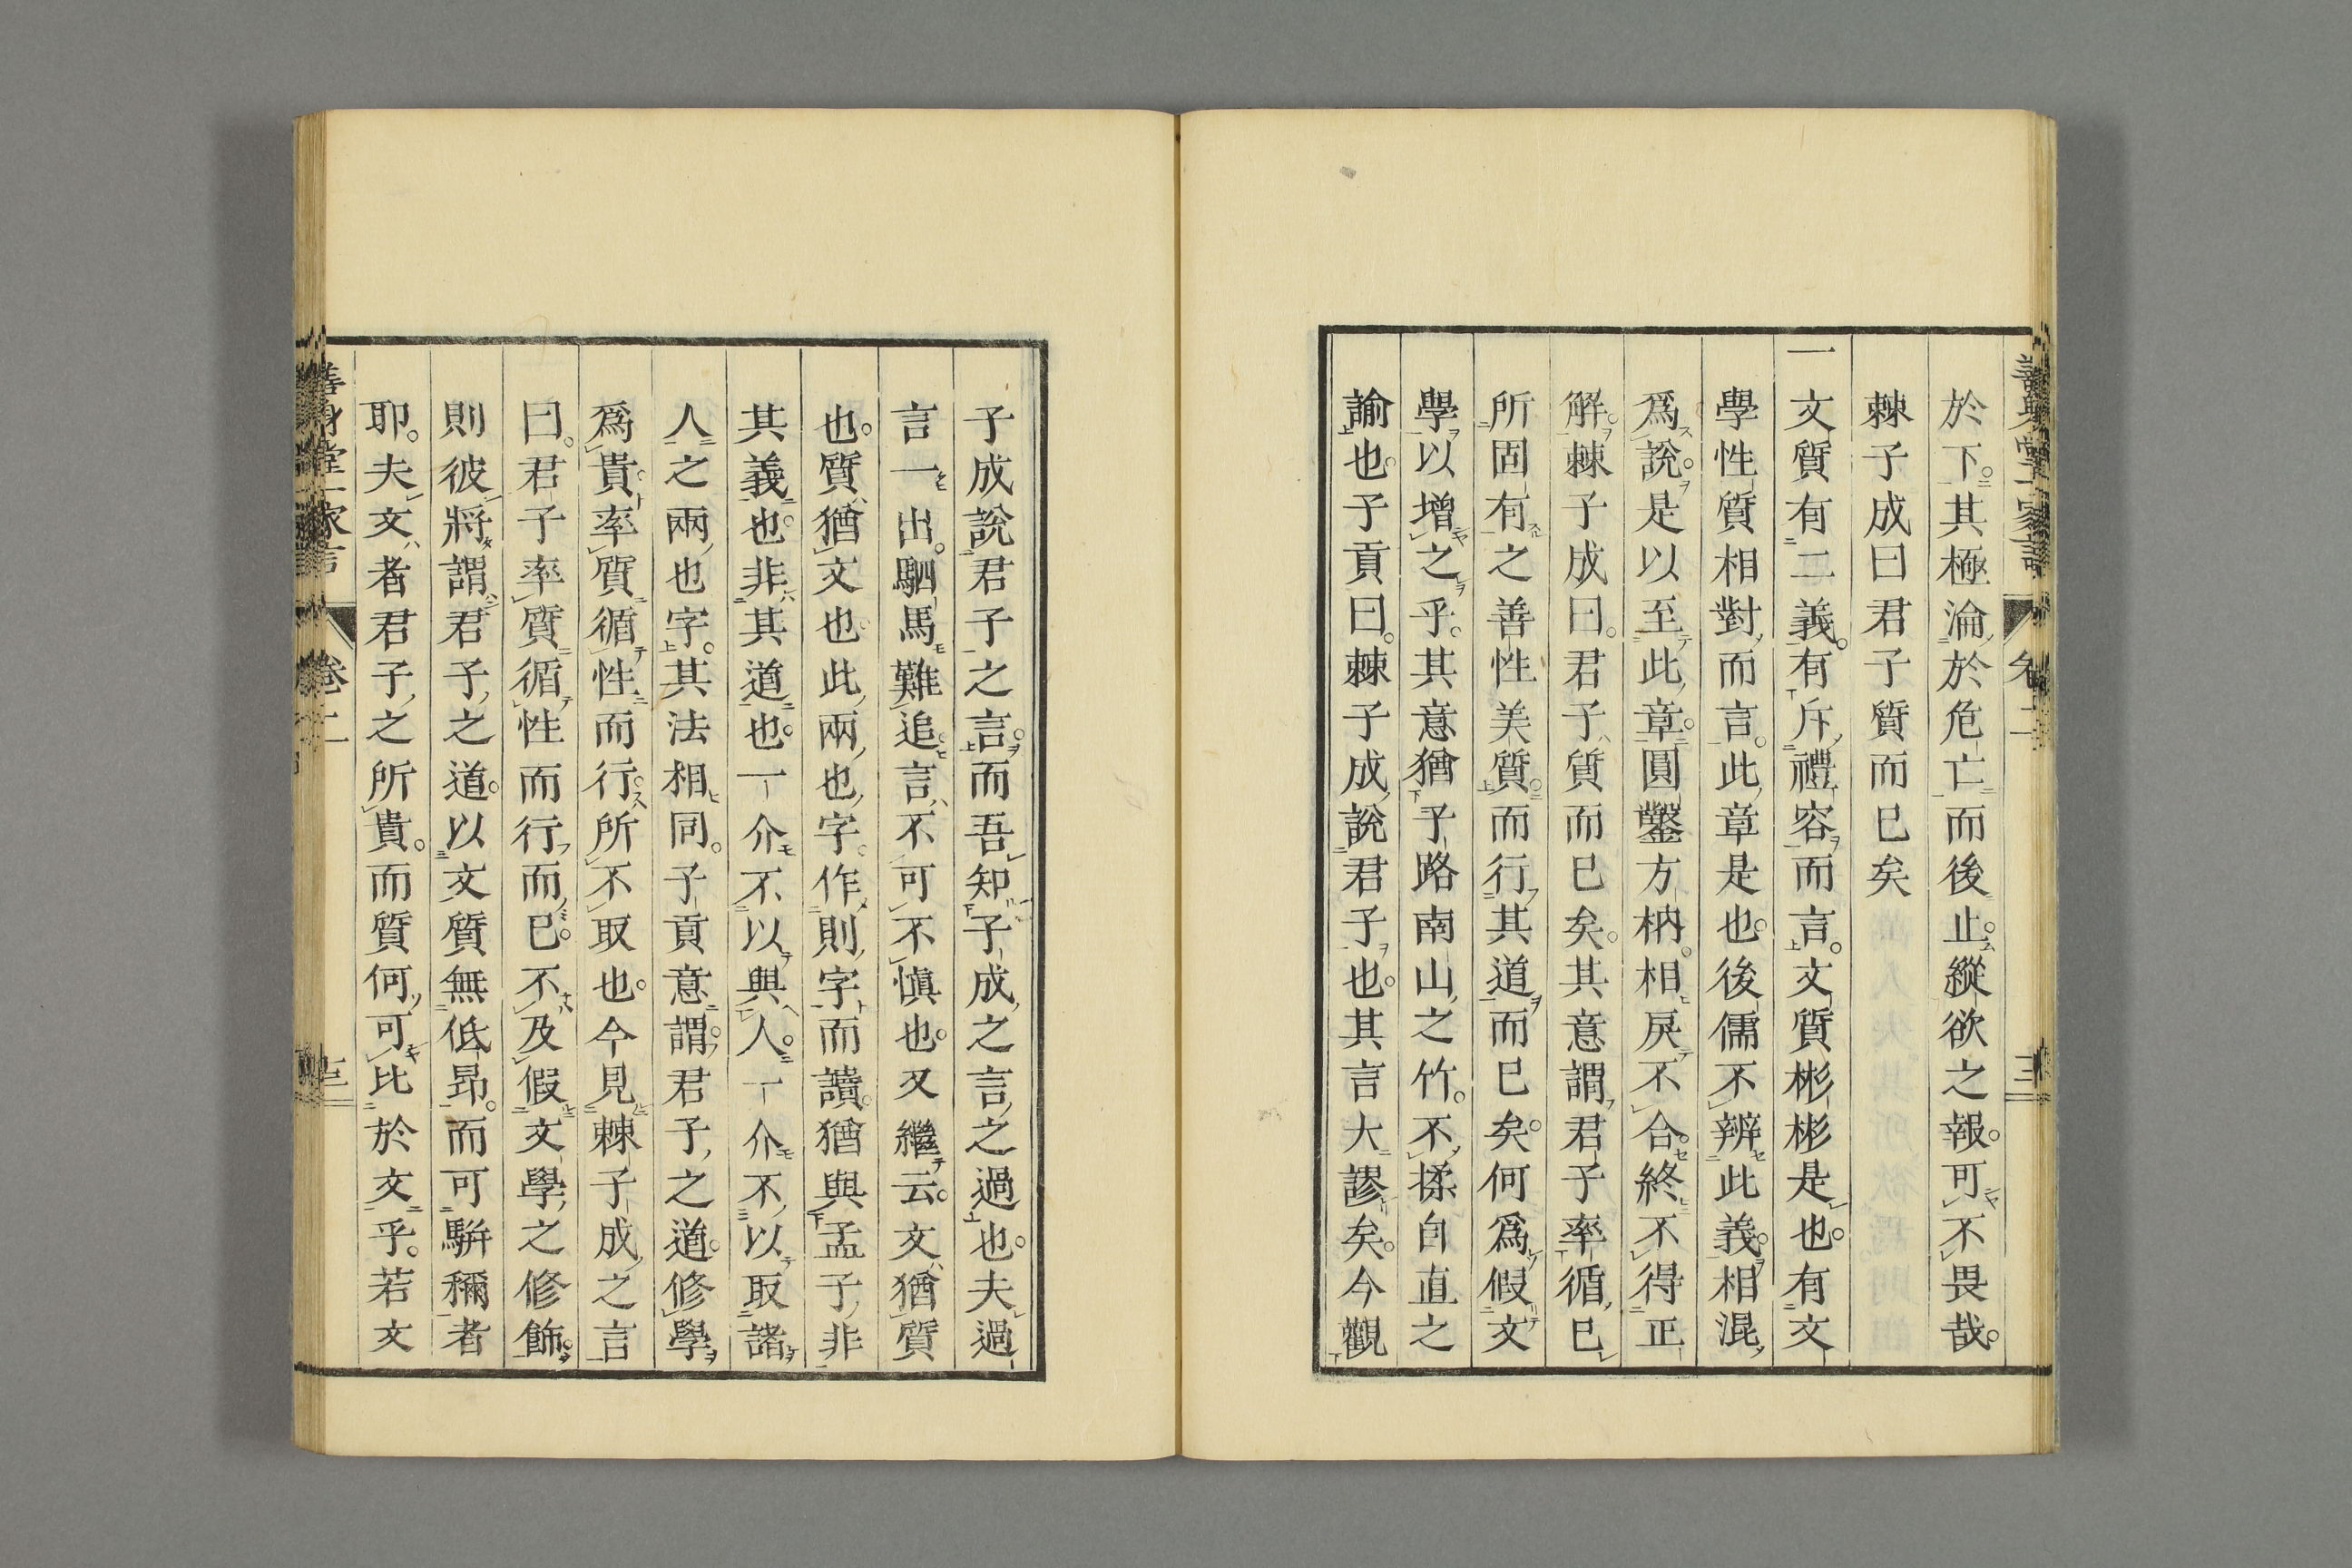 於下其極淪於危亡而後止縱欲之報可不畏哉
棘子成曰君子質而已矣
一文質有二義有斥禮容而言文質彬彬是也有文
學性質相對而言此章是也後儒不辨此義相混
爲說是以至此章圓鑿方枘相戾不合終不得正
解棘子成曰君子質而已矣其意謂君子率循已
所固有之善性美質而行其道而已矣何爲假文
學以增之乎其意猶子路南山之竹不揉自直之
諭也子貢曰棘子成說君子也其言大謬矣今觀
子成說君子之言而吾知子成之言之過也夫過
言一出駟馬難追言不可不慎也又繼云文猶質
也質猶文也此兩也字作則字而讀猶與孟子非
其義也非其道也一介不以與人一介不以取諸
人之兩也字其法相同子貢意謂君子之道修學
爲貴率質循性而行所不取也今見棘子成之言
曰君子率質循性而行而已不及假文學之修飾
則彼將謂君子之道以文質無低昂而可駢稱者
耶夫文者君子之所貴而質何可比於文乎若文
善身堂一家言
卷二